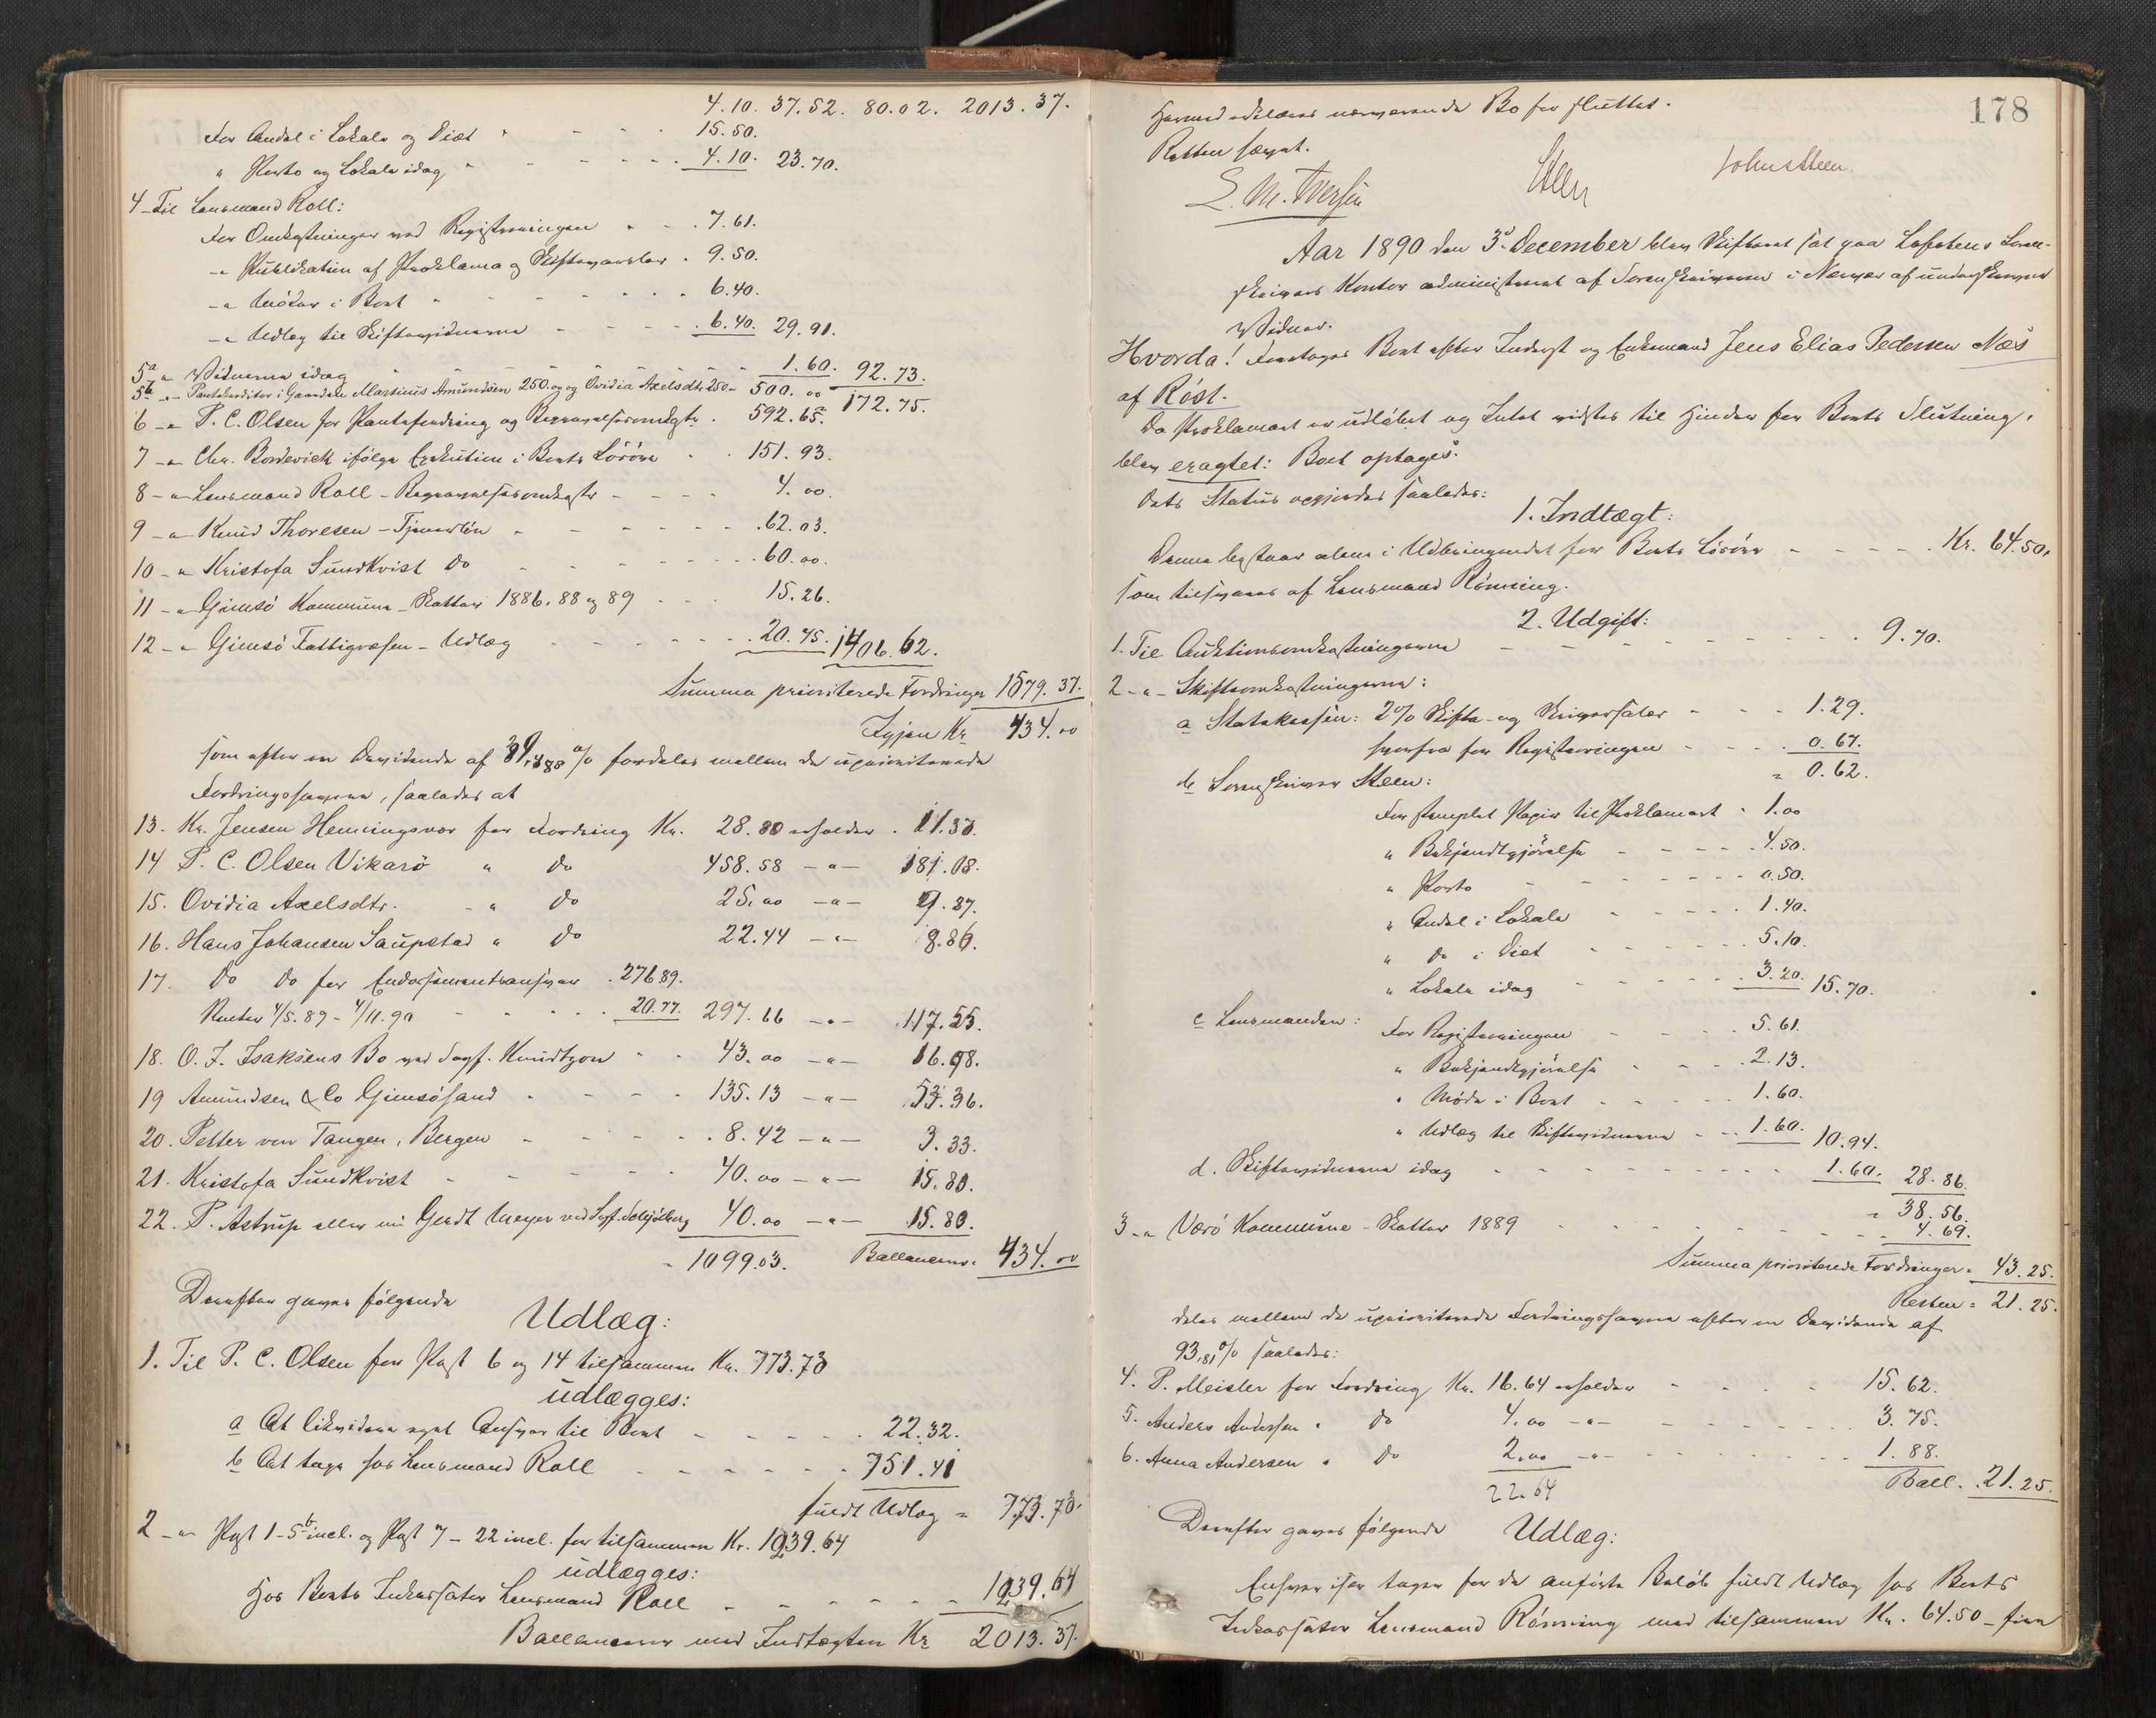 4.10. 37.52. 80.02. 2013.37.
For Andel i Lokale og Diæt 15.50.
" Porto og Lokale idag 4.10. 23.70.
4 - Til Lensmand Roll:
For Omkostninger ved Registreringen 7.61.
-" Publikation af Proklama og Skiftevarsler 9.50.
-" Møder i Boet 6.40.
-" Udlæg til Skiftevidnerne 6.40. 29.91.
5a " Vidnerne idag 1.60. 92.73.
5b -"- Pantekreditor i Gaarden Martinus Amundsen 250.00 og Ovidia Axelsdtr 250- 500.00 172.75.
6 -" P. C. Olsen for Pantefordring og Begravelsesomkgtr. 592.65.
7 -" Chr. Bordevick ifølge Exekution i Boets Løsøre 151.93.
8 -" Lensmand Roll - Begravelsesomkostn. 4.00
9 -" Knud Thoresen - Tjenerløn 62.03.
10 -" Kristofa Sundkvist do 60.00.
11 -" Gimsø Kommune - Skatter 1886. 88 og 89 15.26.
12 -" Gimsø Fattigvæsen - Udlæg 20.75. 1406.62.
Summa prioriterede Fordringer 1579.37.
Igjen Kr 434.00
som efter en Dividende af 39,488 % fordeles mellem de uprioriterede
Fordringshavere, saaledes at
13. Kr. Jensen Henningsvær for Fordring Kr. 28.80 erholder 11.37.
14 P. C. Olsen Vikarø " do 458.58 -"- 181.08.
15. Ovidia Axelsdtr. " do 25.00 -"- 9.87.
16. Hans Johansen Saupstad " do 22.44 -"- 8.86.
17. Do do for Endossementsansvar 276.89.
Renter 4/5.89 - 4/11.90 20.77. 297.66 -"- 117.55.
18. O. J. Isaksens Bo ved Sagf. Knudtzon 43.00 -"- 16.98.
19 Amundsen & Co Gimsøsand 135.13 -"- 53.36.
20. Petter von Tangen, Bergen 8.42 -"- 3.33.
21. Kristofa Sundkvist 40.00 -"- 15.80.
22. P. Astrup eller nu Gerdt Meyer ved Sagf. 40.00 -"- 15.80.
1099.03. Ballancerer 434.00
Derefter gaves følgende
Udlæg:
1. Til P. C. Olsen for Post 6 og 14 tilsammen Kr. 773.73
udlægges:
a At likvidere eget Ansvar til Boet 22.32.
b At tage hos Lensmand Roll 751.41
fuldt Udlæg = 773.73.
2 -" Post 1-5b incl. og Post 7 - 22 incl. for tilsammen Kr. 1239.64
udlægges:
Hos Boets Inkassator Lensmand Roll 1239.64
Ballancerer med Indtægten Kr 2013.37.
178
Hermed erklæres nærværende Bo for sluttet.
Retten hævet.
Steen
John Steen.
L. M. Iversen
Aar 1890 den 3de December blev Skifteret sat paa Lofotens Soren-
skrivers Kontor administreret af Sorenskriveren i Nærvær af underskrevne
Vidner.
Hvorda! Foretoges Boet efter Inderst og Enkemand Jens Elias Pedersen Næs
af Røst.
Da Proklamaet er udløbet og Intet vidstes til Hinder for Boets Slutning,
blev eragtet: Boet optages.
Dets Status opgjordes saaledes:
1. Indtægt:
Denne bestaar alene i Udbringendet for Boets Løsøre Kr. 64.50.
som tilsvares af Lensmand Rønning.
2. Udgift:
1. Til Auktionsomkostningerne 9.70.
2 -"- Skifteomkostningerne:
a Statskassen: 2% Skifte- og Skriversalær 1.29.
herfra for Registreringen 0.67.
= 0.62.
b Sorenskriver Steen:
For stemplet Papir til Proklamaet 1.00
" Bekjendtgjørelse 4.50.
" Porto 0.50.
" Andel i Lokale 1.40.
" do i Diæt 5.10.
" Lokale idag 3.20. 15.70.
c Lensmanden: For Registreringen 5.61.
" Bekjendtgjørelse 2.13.
" Møde i Boet 1.60.
" Udlæg til Skiftevidnerne 1.60. 10.94.
d. Skiftevidnerne idag 1.60. 28.86.
= 38.56.
3 -" Værø Kommune - Skatter 1889 4.69.
Summa prioriterede Fordringer = 43.25.
Resten = 21.25.
deles mellem de uprioriterede Fordringshavere efter en Dividende af
93,81 % saaledes:
4. P. Meisler for Fordring Kr. 16.64 erholder 15.62.
5. Anders Andersen " do 4.00 -"- 3.75.
6. Anna Andersen " do 2.00 -"- 1.88.
22.64 Ball. 21.25.
Derefter gaves følgende Udlæg:
Enhver især tager for de anførte Beløb fuldt Udlæg hos Boets
Inkassator Lensmand Rønning med tilsammen Kr. 64.50 - fire